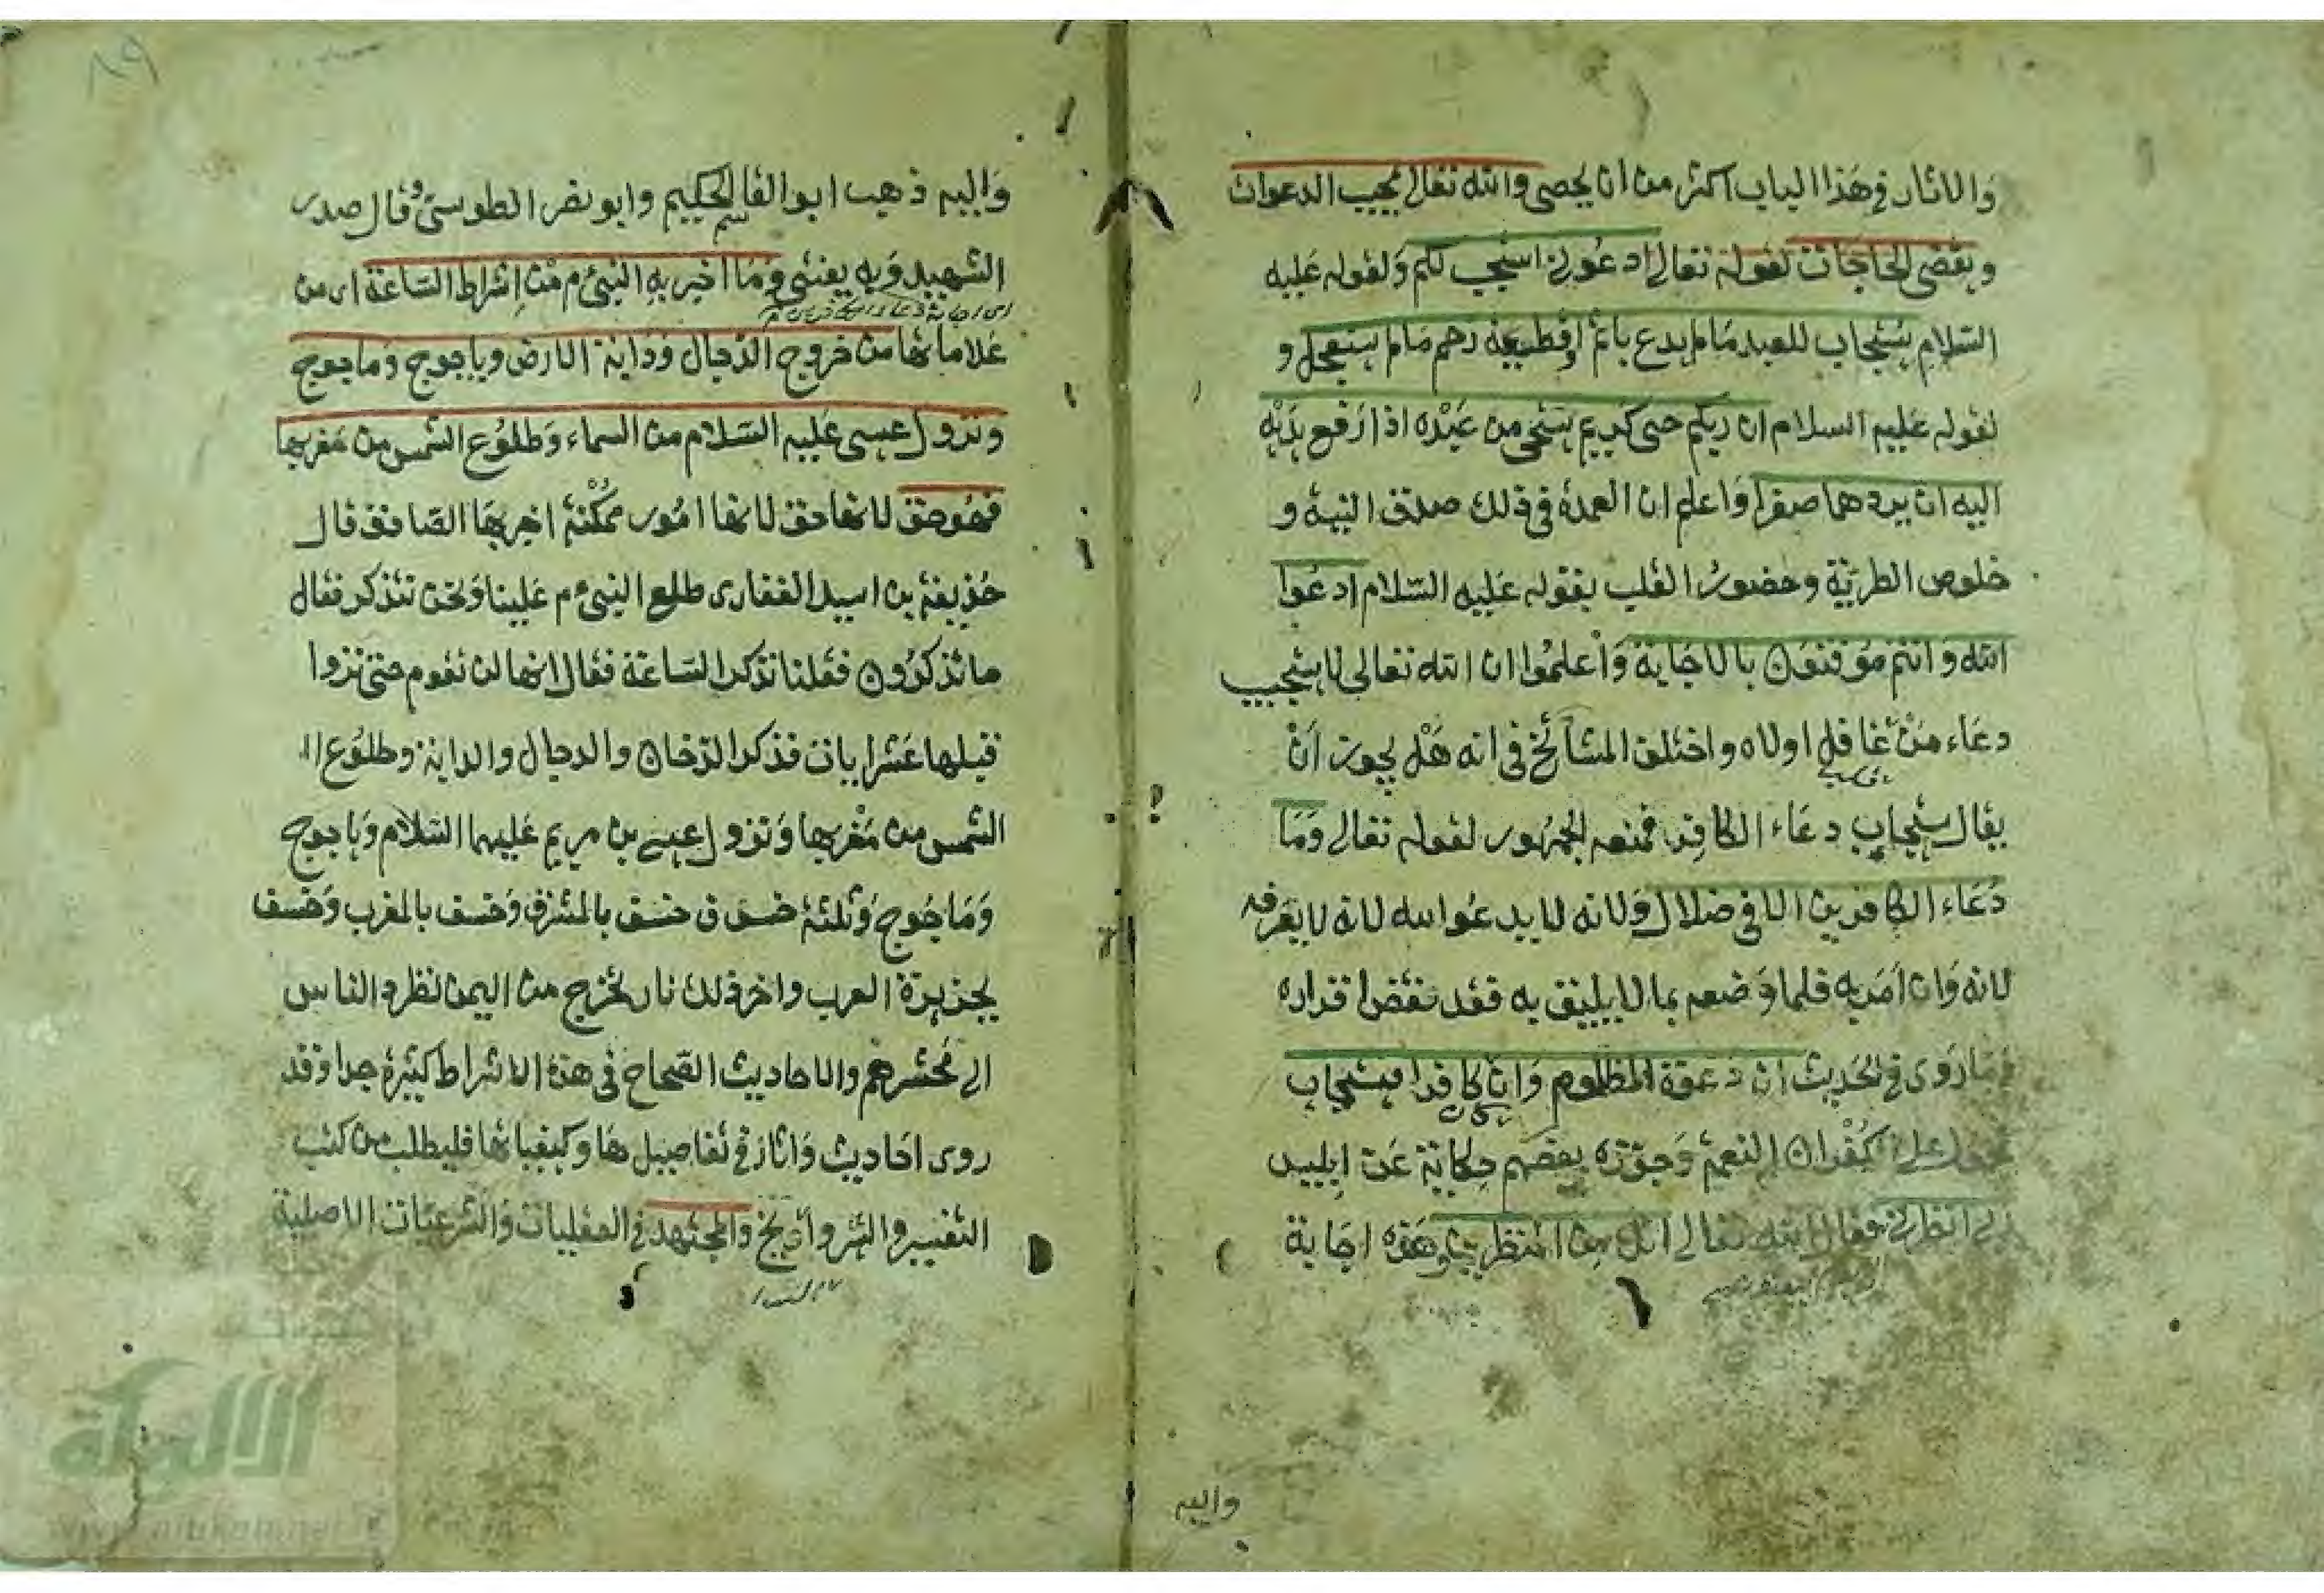 والاثار في هذا الباب اكثر من ان يحصى والله تعالى يجيب الدعوات
ويقضي الحاجات لقوله تعالى ادعوني استجب لكم ولقوله عليه
السلام يستجاب للعبد ما لم يدع باثم او قطيعة رحم ما لم يستعجل و
لقوله عليه السلام ان ربكم حيي كريم يستحي من عبده اذا رفع يديه
اليه ان يردهما صفرا واعلم ان العمدة في ذلك صدق النية و
خلوص الطوية وحضور القلب بقوله عليه السلام ادعوا
الله وانتم موقنون بالاجابة واعلموا ان الله تعالى لا يستجيب
دعاء من غافل لاه واختلف المشائخ في انه هل يجوز ان
يقال يستجاب دعاء الكافر فمنعه الجمهور لقوله تعالى وما
دعاء الكافرين الا في ضلال ولانه لا يدعوا الله لانه لا يعرفه
لانه وان امر به فلما وضعه بما لا يليق به فقد نقض اقراره
وما روي في الحديث ان دعوة المظلوم وان كافرا يستجاب
على كفران النعم وجوزه بعضهم حكاية عن ابليس
انظرني فقال الله تعالى انك من المنظرين وهذه اجابة
واليه
٨٩
واليه ذهب ابو القاسم الحكيم وابو نصر الطوسي وقال صدر
الشهيد وبه يفتى وما اخبر به النبي م من اشراط الساعة اى من
علاماتها من خروج الدجال ودابة الارض وياجوج وماجوج
ونزول عيسى عليه السلام من السماء وطلوع الشمس من مغربها
فهو حق لانها حق لانها امور ممكنة اخبر بها الصادق قال
حذيفة بن اسيد الغفاري طلع النبي م علينا ونحن نتذكر فقال
ما تذكرون فقلنا نذكر الساعة فقال انها لن تقوم حتى تروا
قبلها عشر ايات فذكر الدخان والدجال والدابة وطلوع ا
الشمس من مغربها ونزول عيسى بن مريم عليهما السلام وياجوج
وماجوج وثلثة خسوف خسف بالمشرق وخسف بالمغرب وخسف
بجزيرة العرب واخر ذلك نار تخرج من اليمن تطرد الناس
الى محشرهم والاحاديث الصحاح في هذه الاشراط كثيرة جدا وقد
روى احاديث واثار في تفاصيلها وكيفياتها فليطلب من كتب
التفسير والسير والتواريخ والمجتهد في العقليات والشرعيات الاصلية
الألوكة
www.alukah.net